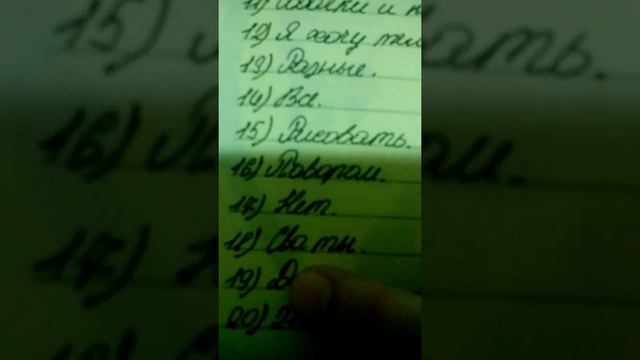 и
12) Я хочу
13) Разные.
14) Все.
15) Рисовать.
16) Поваром.
17) Нет.
18) Сваты.
19) Д
20)